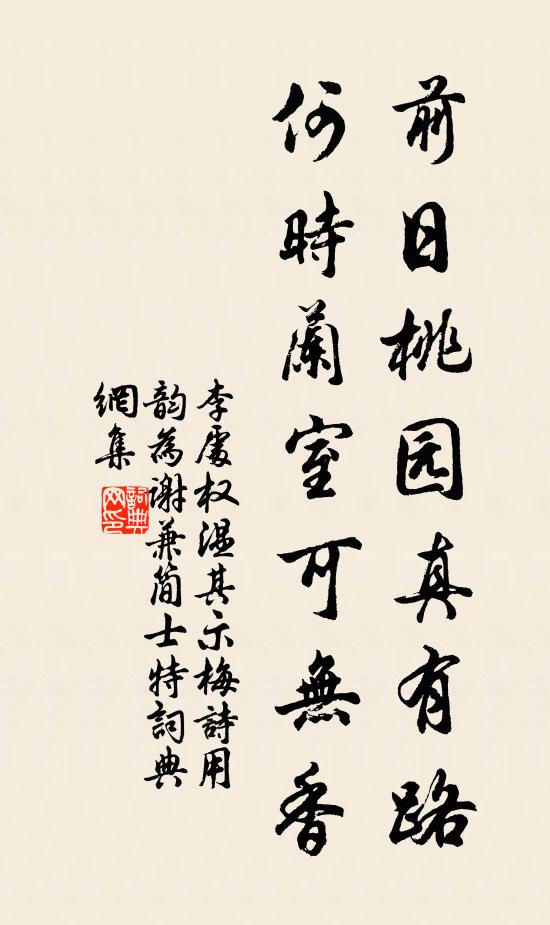 前日桃园真有路
何時蘭室可無香
李處权温其示梅詩用
韵為谢兼简士特詞典
網集
詞典網印